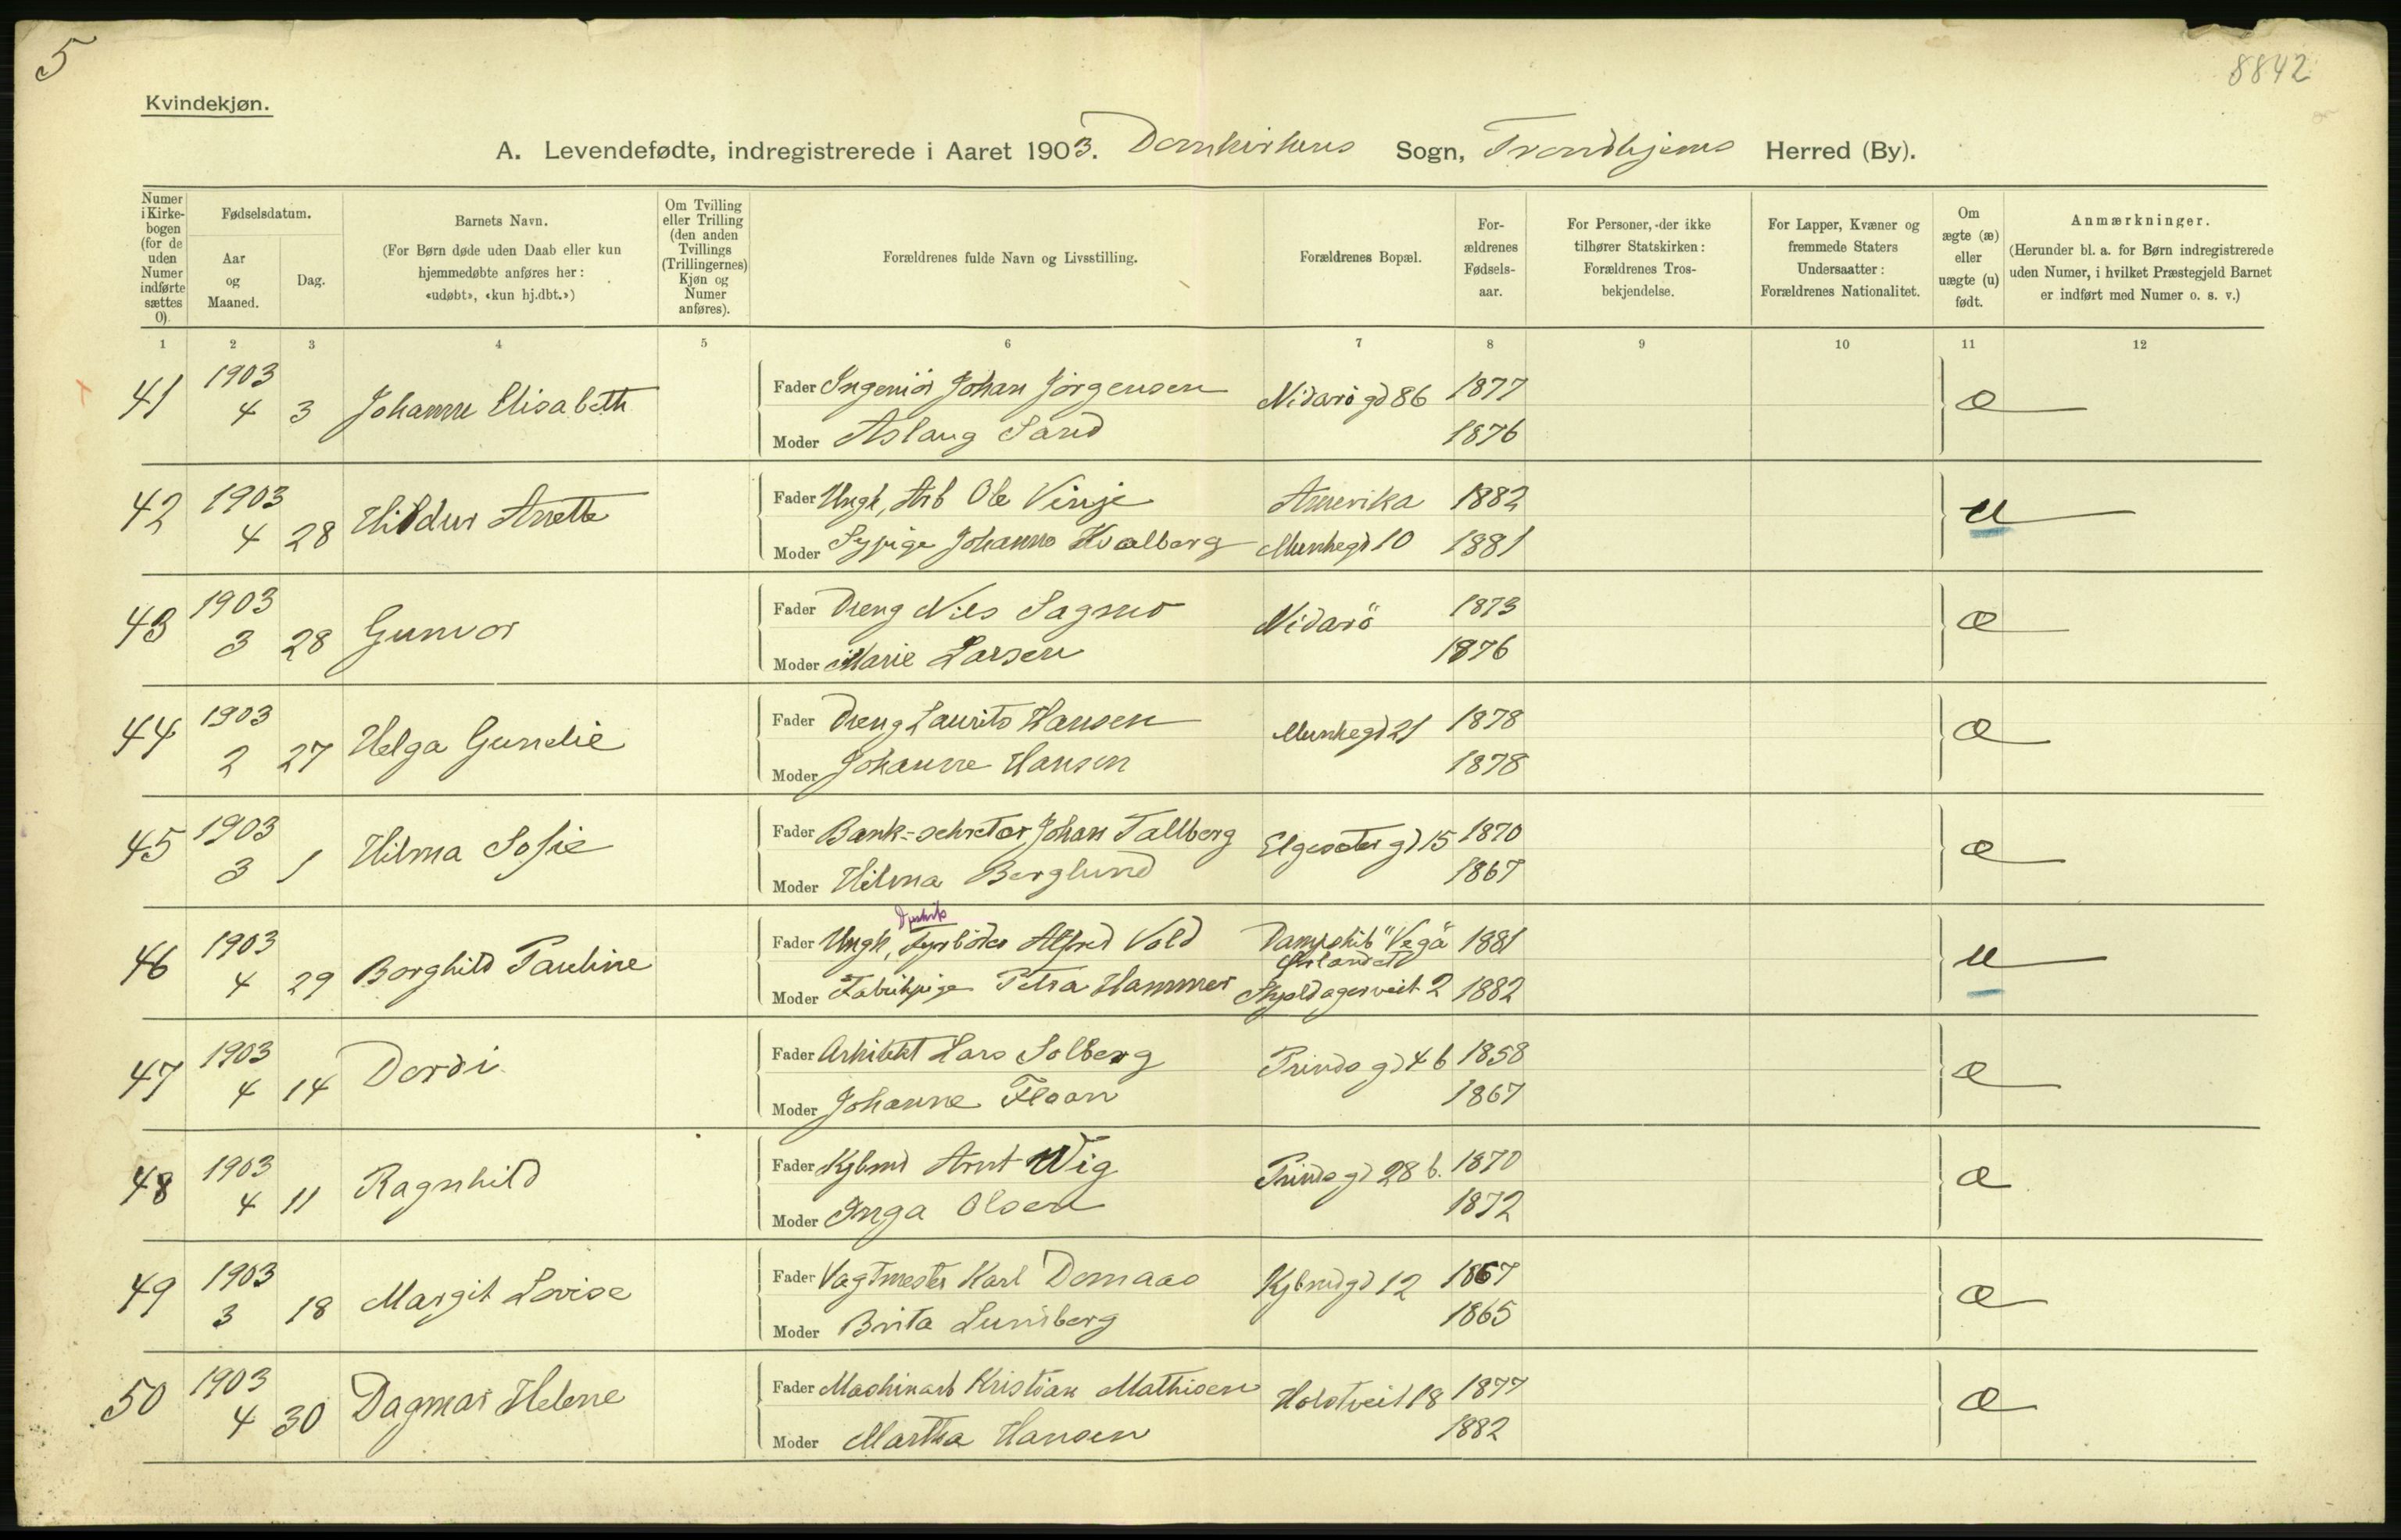 5
8842
Kvindekjøn.
A. Levendefødte, indregistrerede i Aaret 1903. Domkirkens Sogn, Trondhjems Herred (By).
Numer i Kirkebogen (for de uden Numer indførte sættes 0).
Fødselsdatum.
Aar og Maaned.
Dag.
Barnets Navn.
(For Børn døde uden Daab eller kun hjemmedøbte anføres her: «udøbt», «kun hj.dbt.»)
Om Tvilling eller Trilling (den anden Tvillings (Trillingernes) Kjøn og Numer anføres).
Forældrenes fulde Navn og Livsstilling.
Forældrenes Bopæl.
Forældrenes Fødselsaar.
For Personer, der ikke tilhører Statskirken: Forældrenes Trosbekjendelse.
For Lapper, Kvæner og fremmede Staters Undersaatter: Forældrenes Nationalitet.
Om ægte (æ) eller uægte (u) født.
Anmærkninger.
(Herunder bl. a. for Børn indregistrerede uden Numer, i hvilket Præstegjeld Barnet er indført med Numer o. s. v.)
1 2 3 4 5 6 7 8 9 10 11 12
41 1903 4 3 Johanne Elisabeth Fader Ingeniör Johan Jörgensen Nidarö gd 86 1877 æ
Moder Aslaug Sand 1876
42 1903 4 28 Hildur Anette Fader Ungk, Arb Ole Vinje Amerika 1882 u
Moder Sypige Johanna Hvalberg Munkegd 10 1881
43 1903 3 28 Gunvor Fader Dreng Nils Sagmo Nidarö 1873 æ
Moder Marie Larsen 1876
44 1903 2 27 Helga Gundie Fader Dreng Laurits Hansen Munkegd 21 1878 æ
Moder Johanne Hansen 1878
45 1903 3 1 Hilma Sofie Fader Bank-sekretær Johan Tallberg Elgesæter gd 15 1870 æ
Moder Hilma Berglund 1867
46 1903 4 29 Borghild Pauline Fader Ungk, Fyrböder Alfred Vold Dampskib "Vega" 1881 u
Moder Fabrikpige Petra Hammer Skjoldagerveit 2 1882
47 1903 4 14 Dordi Fader Arkitekt Lars Solberg Prinds gd 4 b 1858 æ
Moder Johanne Floan 1867
48 1903 4 11 Ragnhild Fader Kjbmd Arnt Wig Prinds gd 28 b. 1870 æ
Moder Inga Olsen 1872
49 1903 3 18 Margit Lovise Fader Vagtmester Karl Domaas Kjbmdgd 12 1867 æ
Moder Brita Lundberg 1865
50 1903 4 30 Dagmar Helene Fader Maskinarb Kristian Mathisen Holstveit 18 1877 æ
Moder Martha Hansen 1882